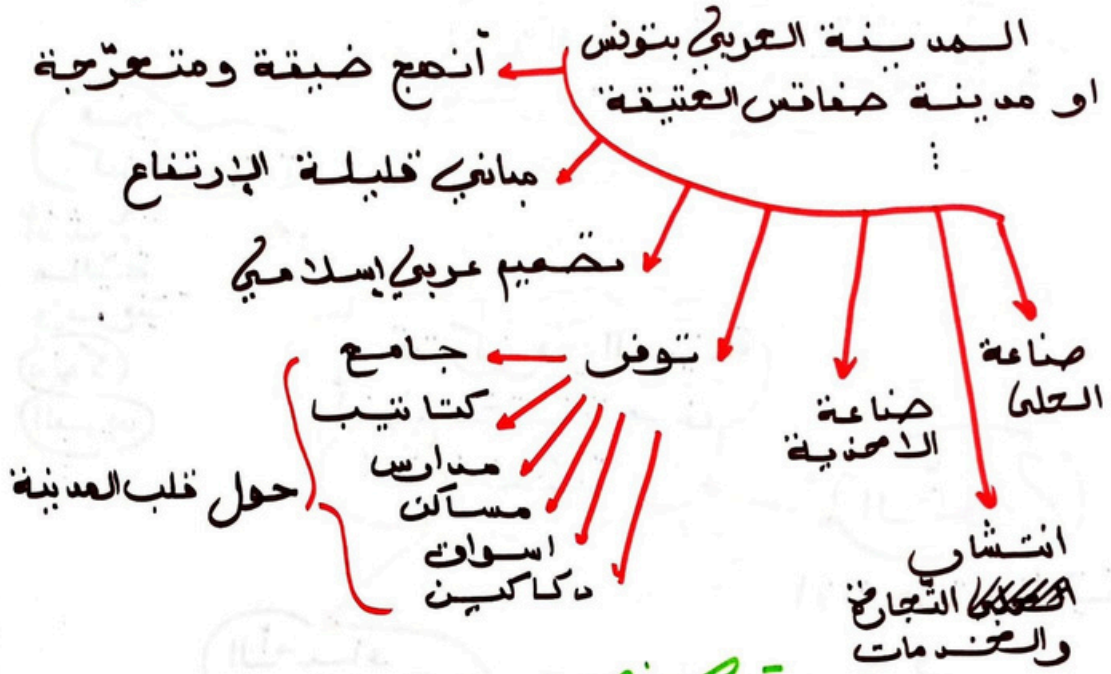 المدينة العربي بتونس
او مدينة صفاقس العتيقة
أنهج ضيقة ومتعرّجة
مباني قليلة الإرتفاع
تصميم عربي إسلامي
توفر
جامع
كتاتيب
مدارس
مساكن
اسواق
دكاكين
حول قلب المدينة
صناعة
الحلي
صناعة
الاحذية
انتشار
التّجارة
والخدمات